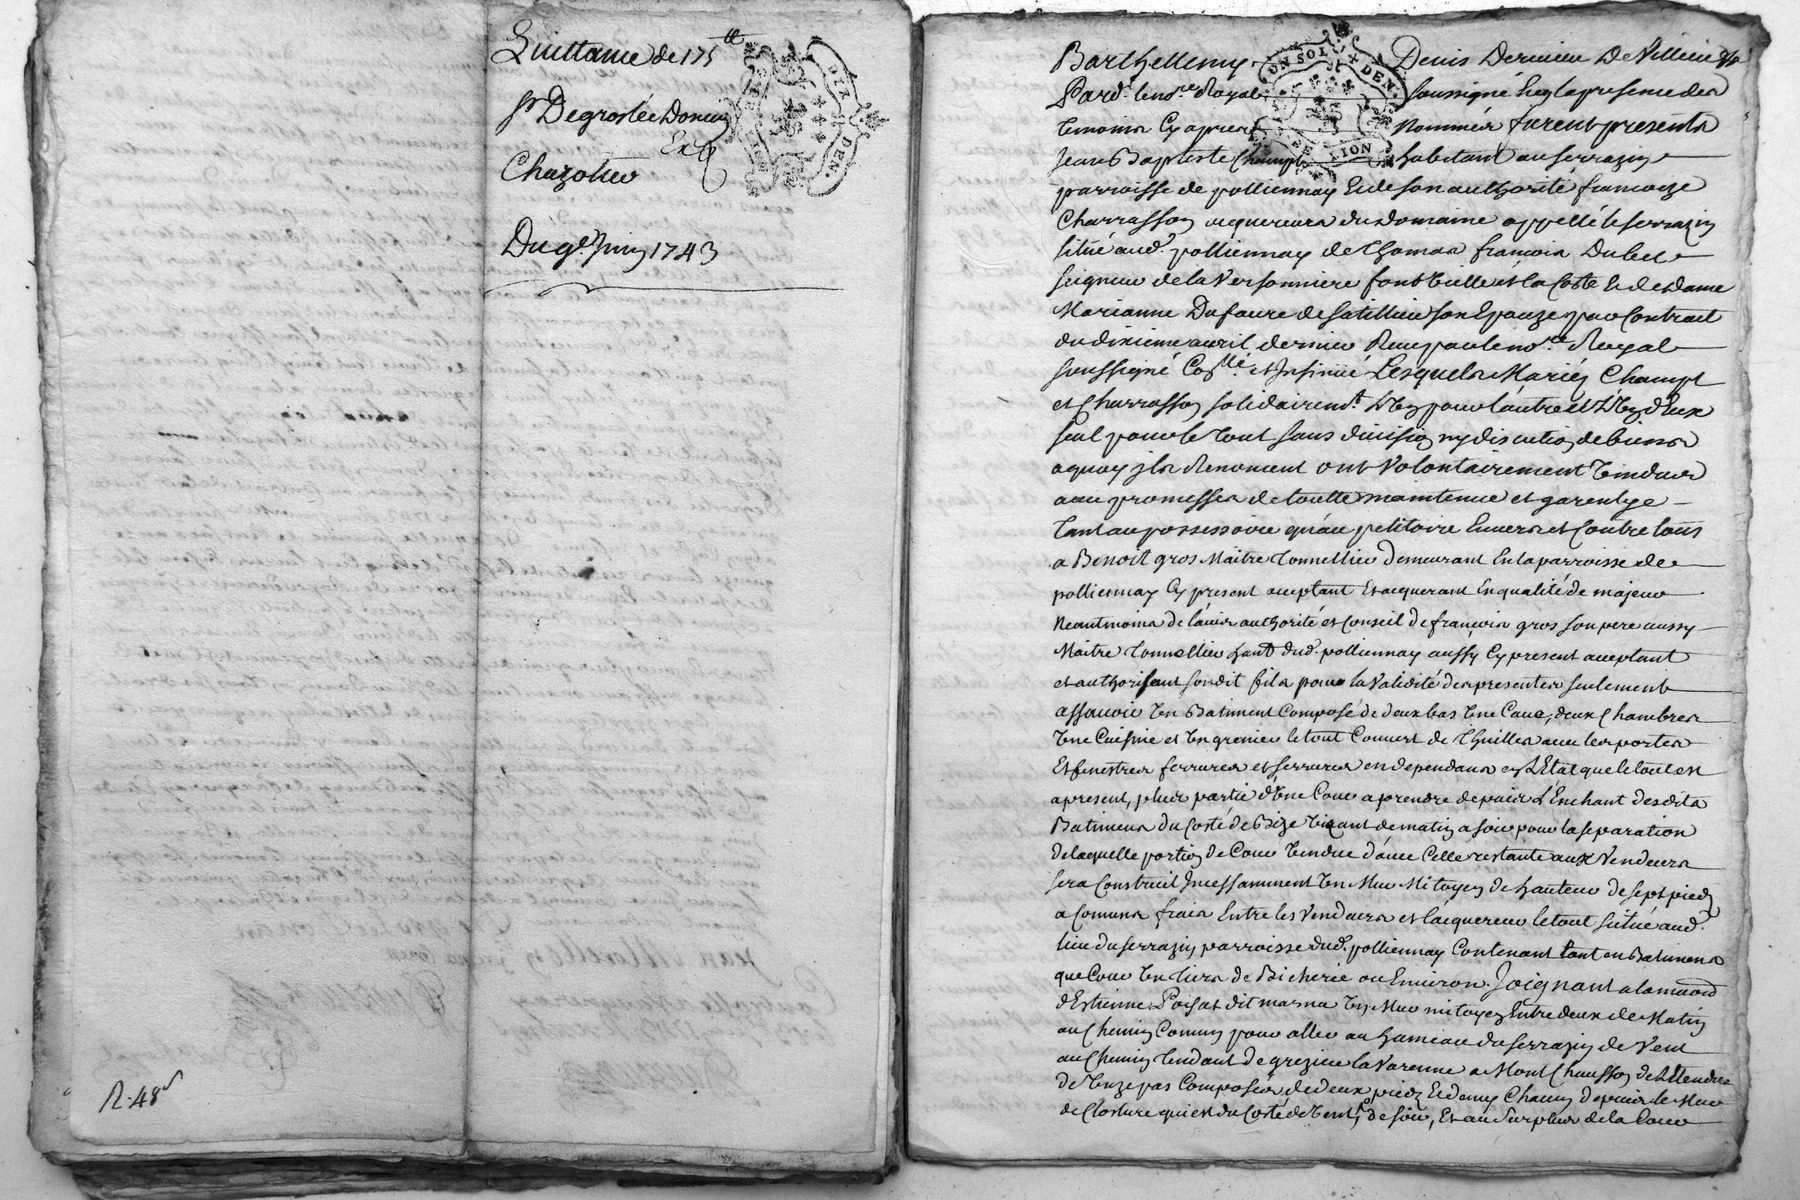 Quittance de 175 ₶
Sr Degrolée Doneur
Exp
Chazottier
Du 9e Juin 1743
DIX DEN.
R. 48 s
UN SOL DEN.
LION
Barthellemy Denis Dernieu De Villieu &
Par dt le nore Royal soussigné En la presence des
temoins Cy apres Nommés furent presents
Jean Baptiste Champt habitant au Serrazin
parroisse de polliennay Et de son authorité francoize
Charrasson acquereurs du domaine appellé le Serrazin
situé aud. polliennay de Thomas francois Dubec
seigneur de la Versonniere fontvieille et la Coste Et de dame
Marianne Dufaure de Satillieu son Epouze par Contract
du dixieme avril dernier Reçu par le nore Royal
soussigné Collé et Insinué Lesquels Mariés Champt
et Charrasson solidairemt. L'un pour l'autre et L'un d'Eux
seul pour le tout sans division ny discution de biens
a quoy jls Renoncent ont Volontairement Vendus
avec promesses de toutte maintenue et garentye
tant au possessoire qu'au petitoire Envers et Contre tous
a Benoit gros Maitre tonnellier demeurant En la parroisse de
polliennay Cy present acceptant Et acquerant En qualité de majeur
Neantmoins de l'avis authorité et Conseil de francois gros son pere aussy
Maitre tonnellier hant dud. polliennay aussy Cy present acceptant
et authorisant sondit fils pour la Validité des presentes seulement
assavoir Un Batiment Composé de deux bas Une Cave, deux Chambres
Une Cuisine et Un grenier le tout Couvert de Thuilles avec les portes
Et fenestres ferrures et serrures en dependans en L'Etat que le tout est
a present, plus partie d'Une Cour a prendre depuis L'Enchant desdits
Batimens du Costé de Bize Tirant de matin a soir pour la separation
de laquelle portion de Cour Vendue d'avec Celle restante aux Vendeurs
sera Construit Incessamment Un Mur Mitoyen de hauteur de sept pieds
a Comuns frais Entre les Vendeurs et l'acquereur le tout situé aud.
lieu du Serrazin parroisse dud. polliennay Contenant tant en Batimens
que Cour Un tiers de Bicherée ou Environ. Joignant a la maison
d'Estienne Poisat dit marma Un Mur mitoyen Entre deux de Matin
au Chemin Comun pour aller au hameau du Serrazin de Vent
au Chemin tendant de grezieu la Varenne a Mont Chausson de L'Etendue
de Unze pas Composés de deux pieds Et demy Chacun depuis le Mur
de Closture qui est du Costé de Vent, de soir, Et au Surplus de la Cour